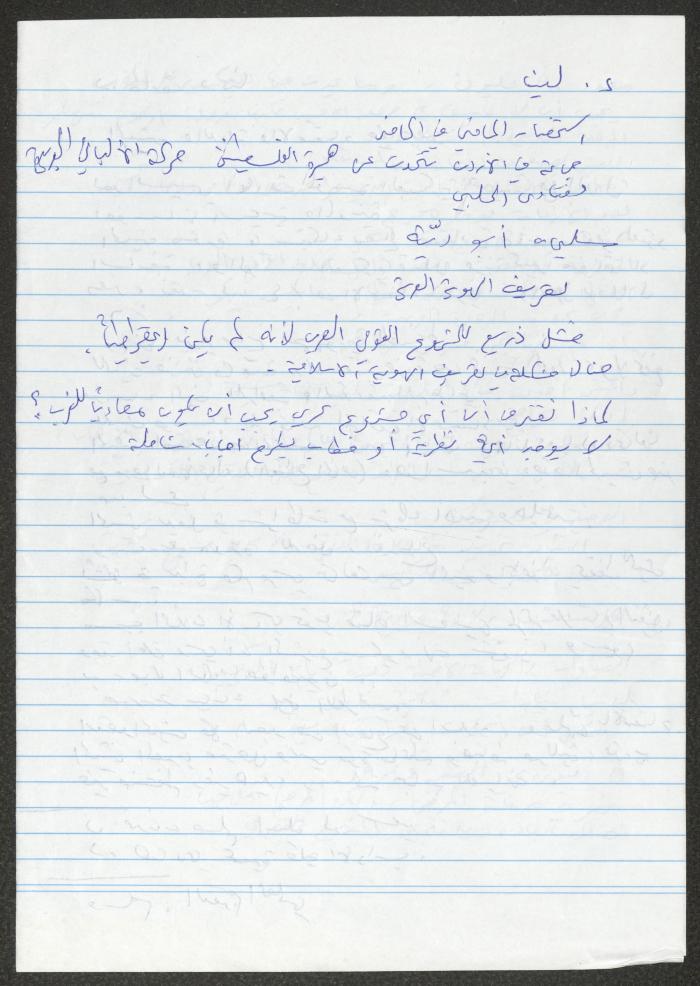 د. لينا
استحضار الماضي في الحاضر
في الأردن تتحدث عن هجرة الفلسطينيين حركة
فتاوى الحلبي
سليم أبو ديّة
تعريف الهوية العربية
فشل ذريع للمشروع القومي العربي لأنه لم يكن ديمقراطياً.
هناك مشكلة في تعريف الهوية الاسلامية -
لماذا نفترض أن أي مشروع عربي يجب أن يكون معادياً للغرب؟
لا يوجد أي نظرية أو خطاب يطرح اجابات شاملة